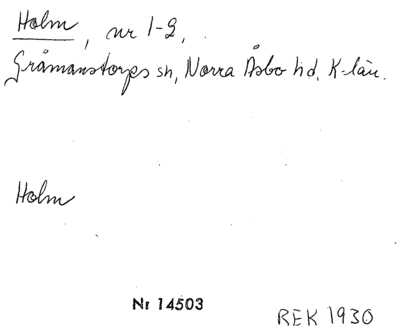 Holm, nr 1-2,
Gråmanstorps sn, Norra Åsbo hd, K-län.
Holm
Nr 14503
REK 1930